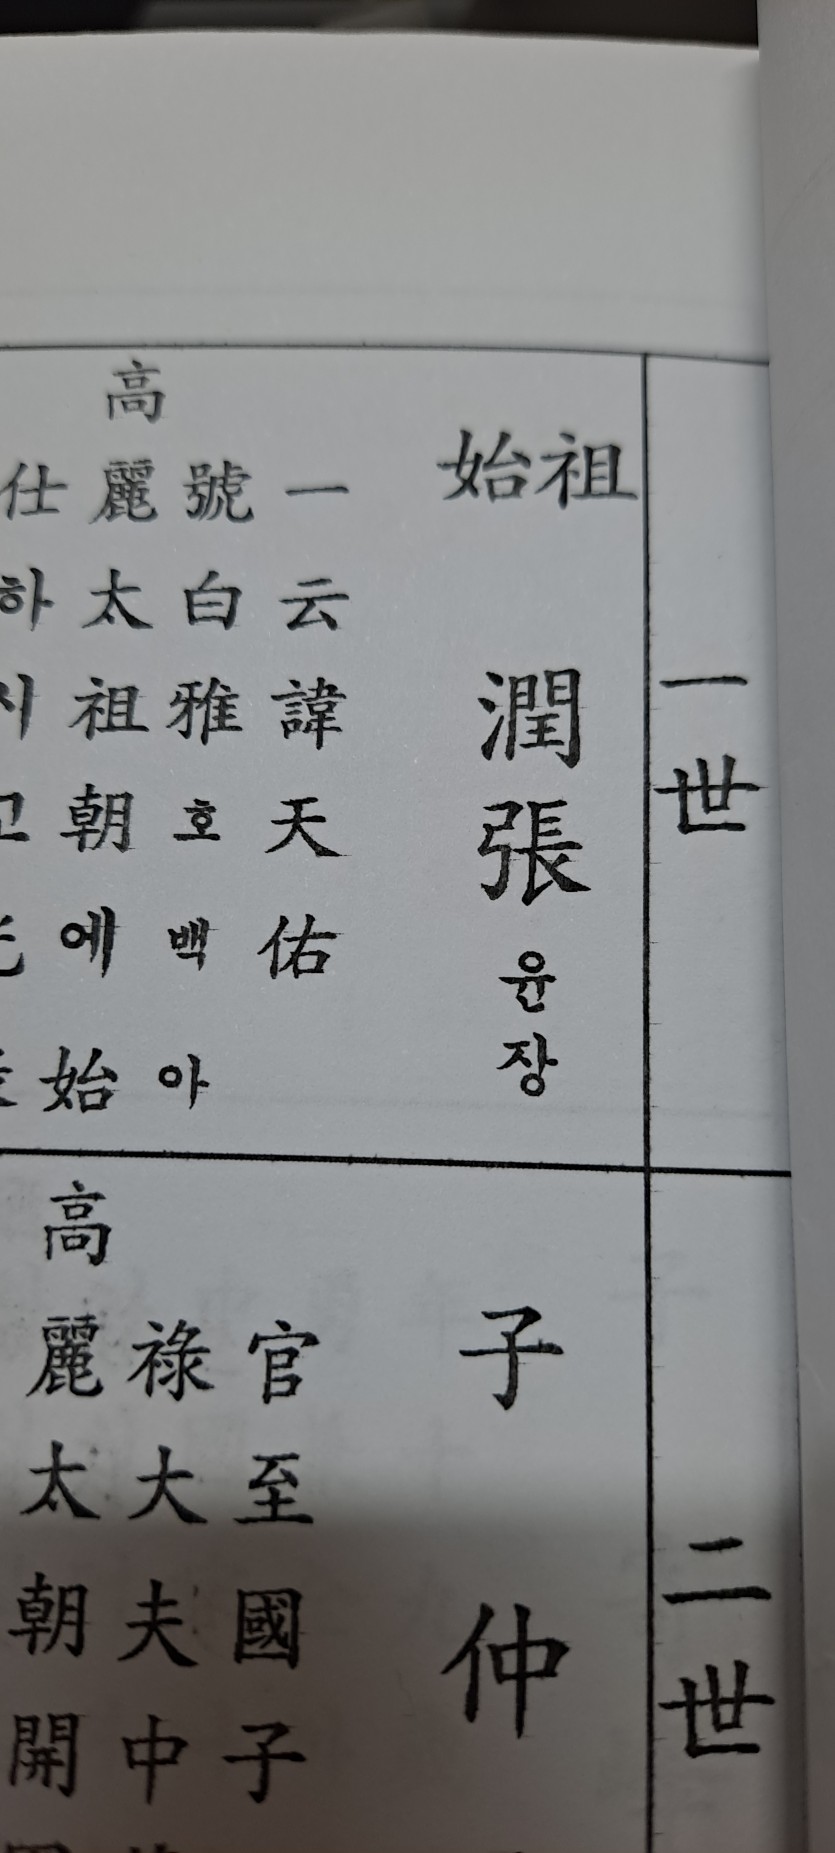 一世
始祖
潤張윤장
一云諱天佑
號白雅호백아
高麗太祖朝에始
仕하시고
二世
子
仲
官至國子
祿大夫中
高麗太朝開